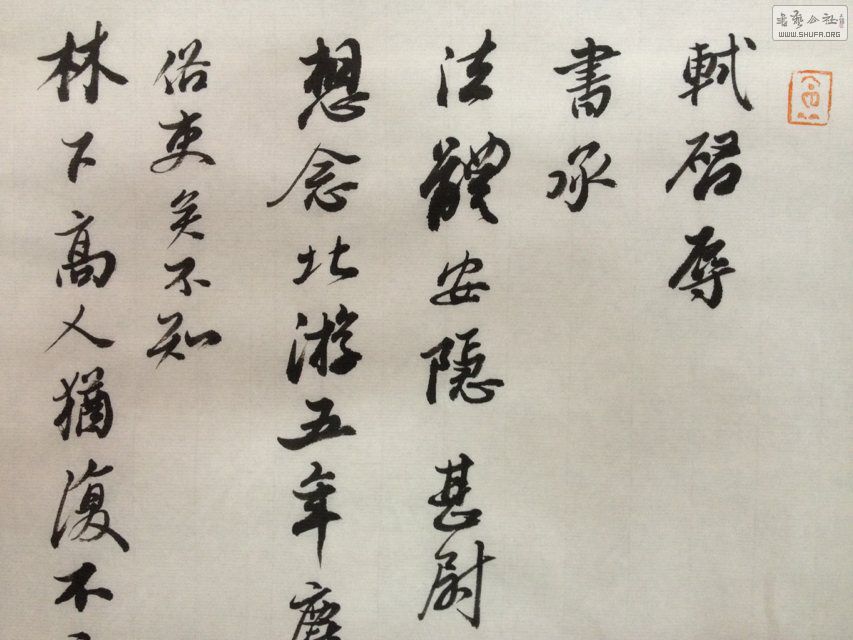 軾啓辱
書承
法體安隱甚尉
想念北游五年塵
俗吏矣不知
林下高人猶復不
書藝公社
WWW.SHUFA.ORG